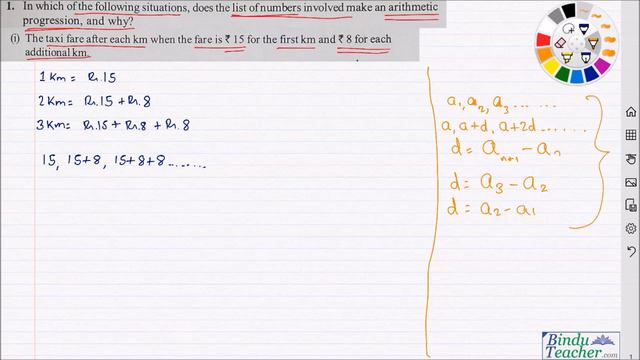 1. In which of the following situations, does the list of numbers involved make an arithmetic
progression, and why?
(i) The taxi fare after each km when the fare is ₹ 15 for the first km and ₹ 8 for each
additional km.
1 Km = Rs.15
2 Km = Rs.15 + Rs.8
3 Km = Rs.15 + Rs.8 + Rs.8
15, 15+8, 15+8+8........
a₁, a₂, a₃ .......
a, a+d, a+2d ......
d = aₙ₊₁ - aₙ
d = a₃ - a₂
d = a₂ - a₁
Bindu
Teacher.com